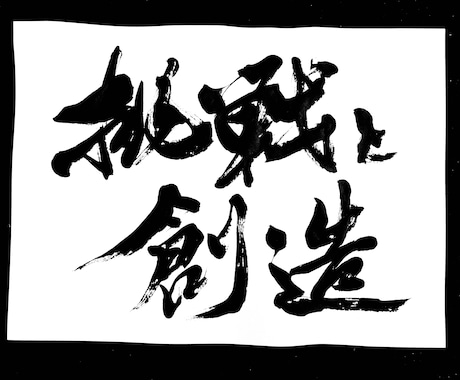 挑戦と
創造